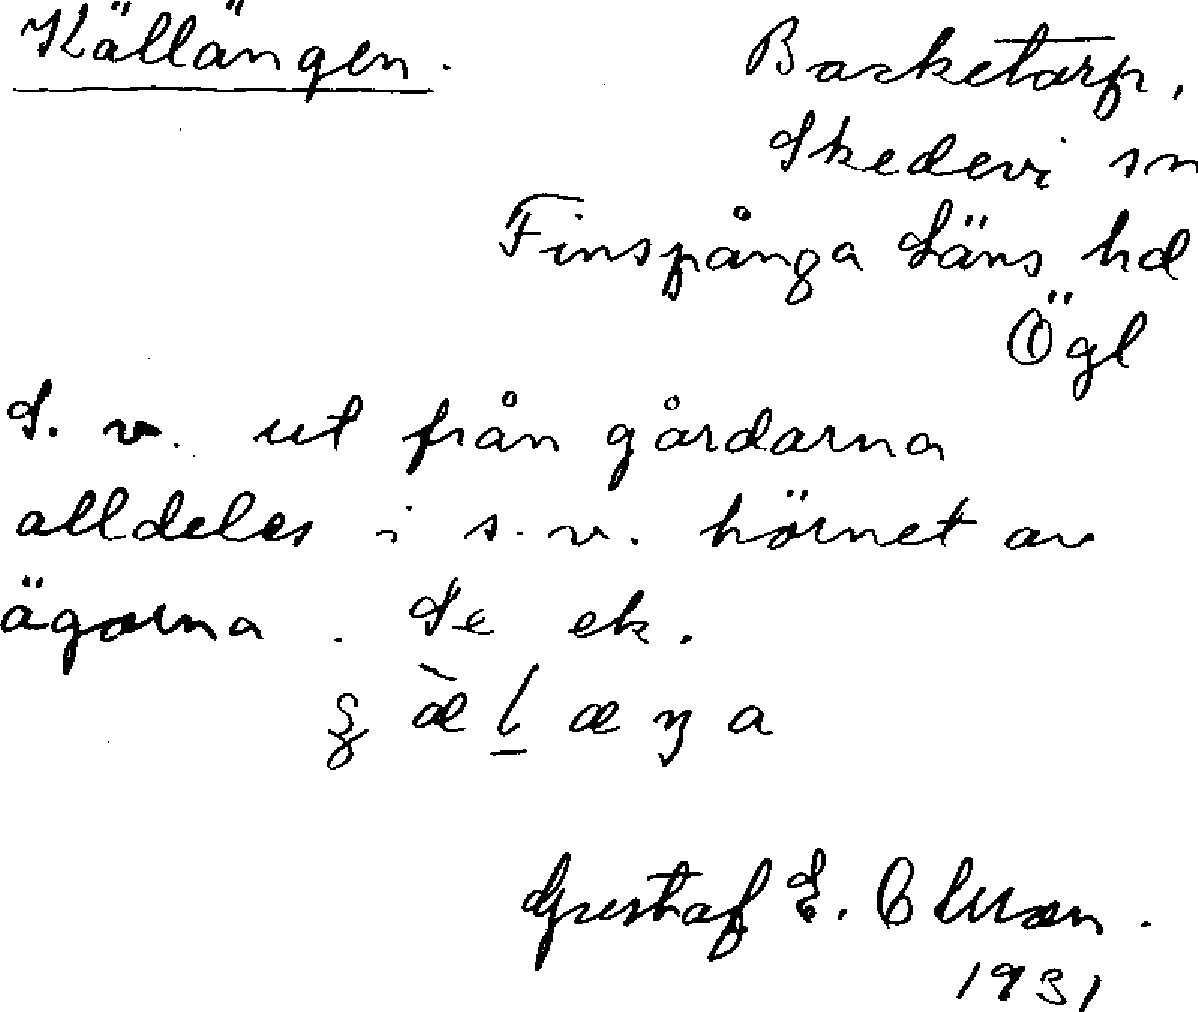 Källängen.
Backetorp,
Skedevi sn
Finspånga Läns hd
Ögl
S. v. ut från gårdarna
alldeles i s.v. hörnet av
ägorna. Se ek.
Gustaf E.
1931